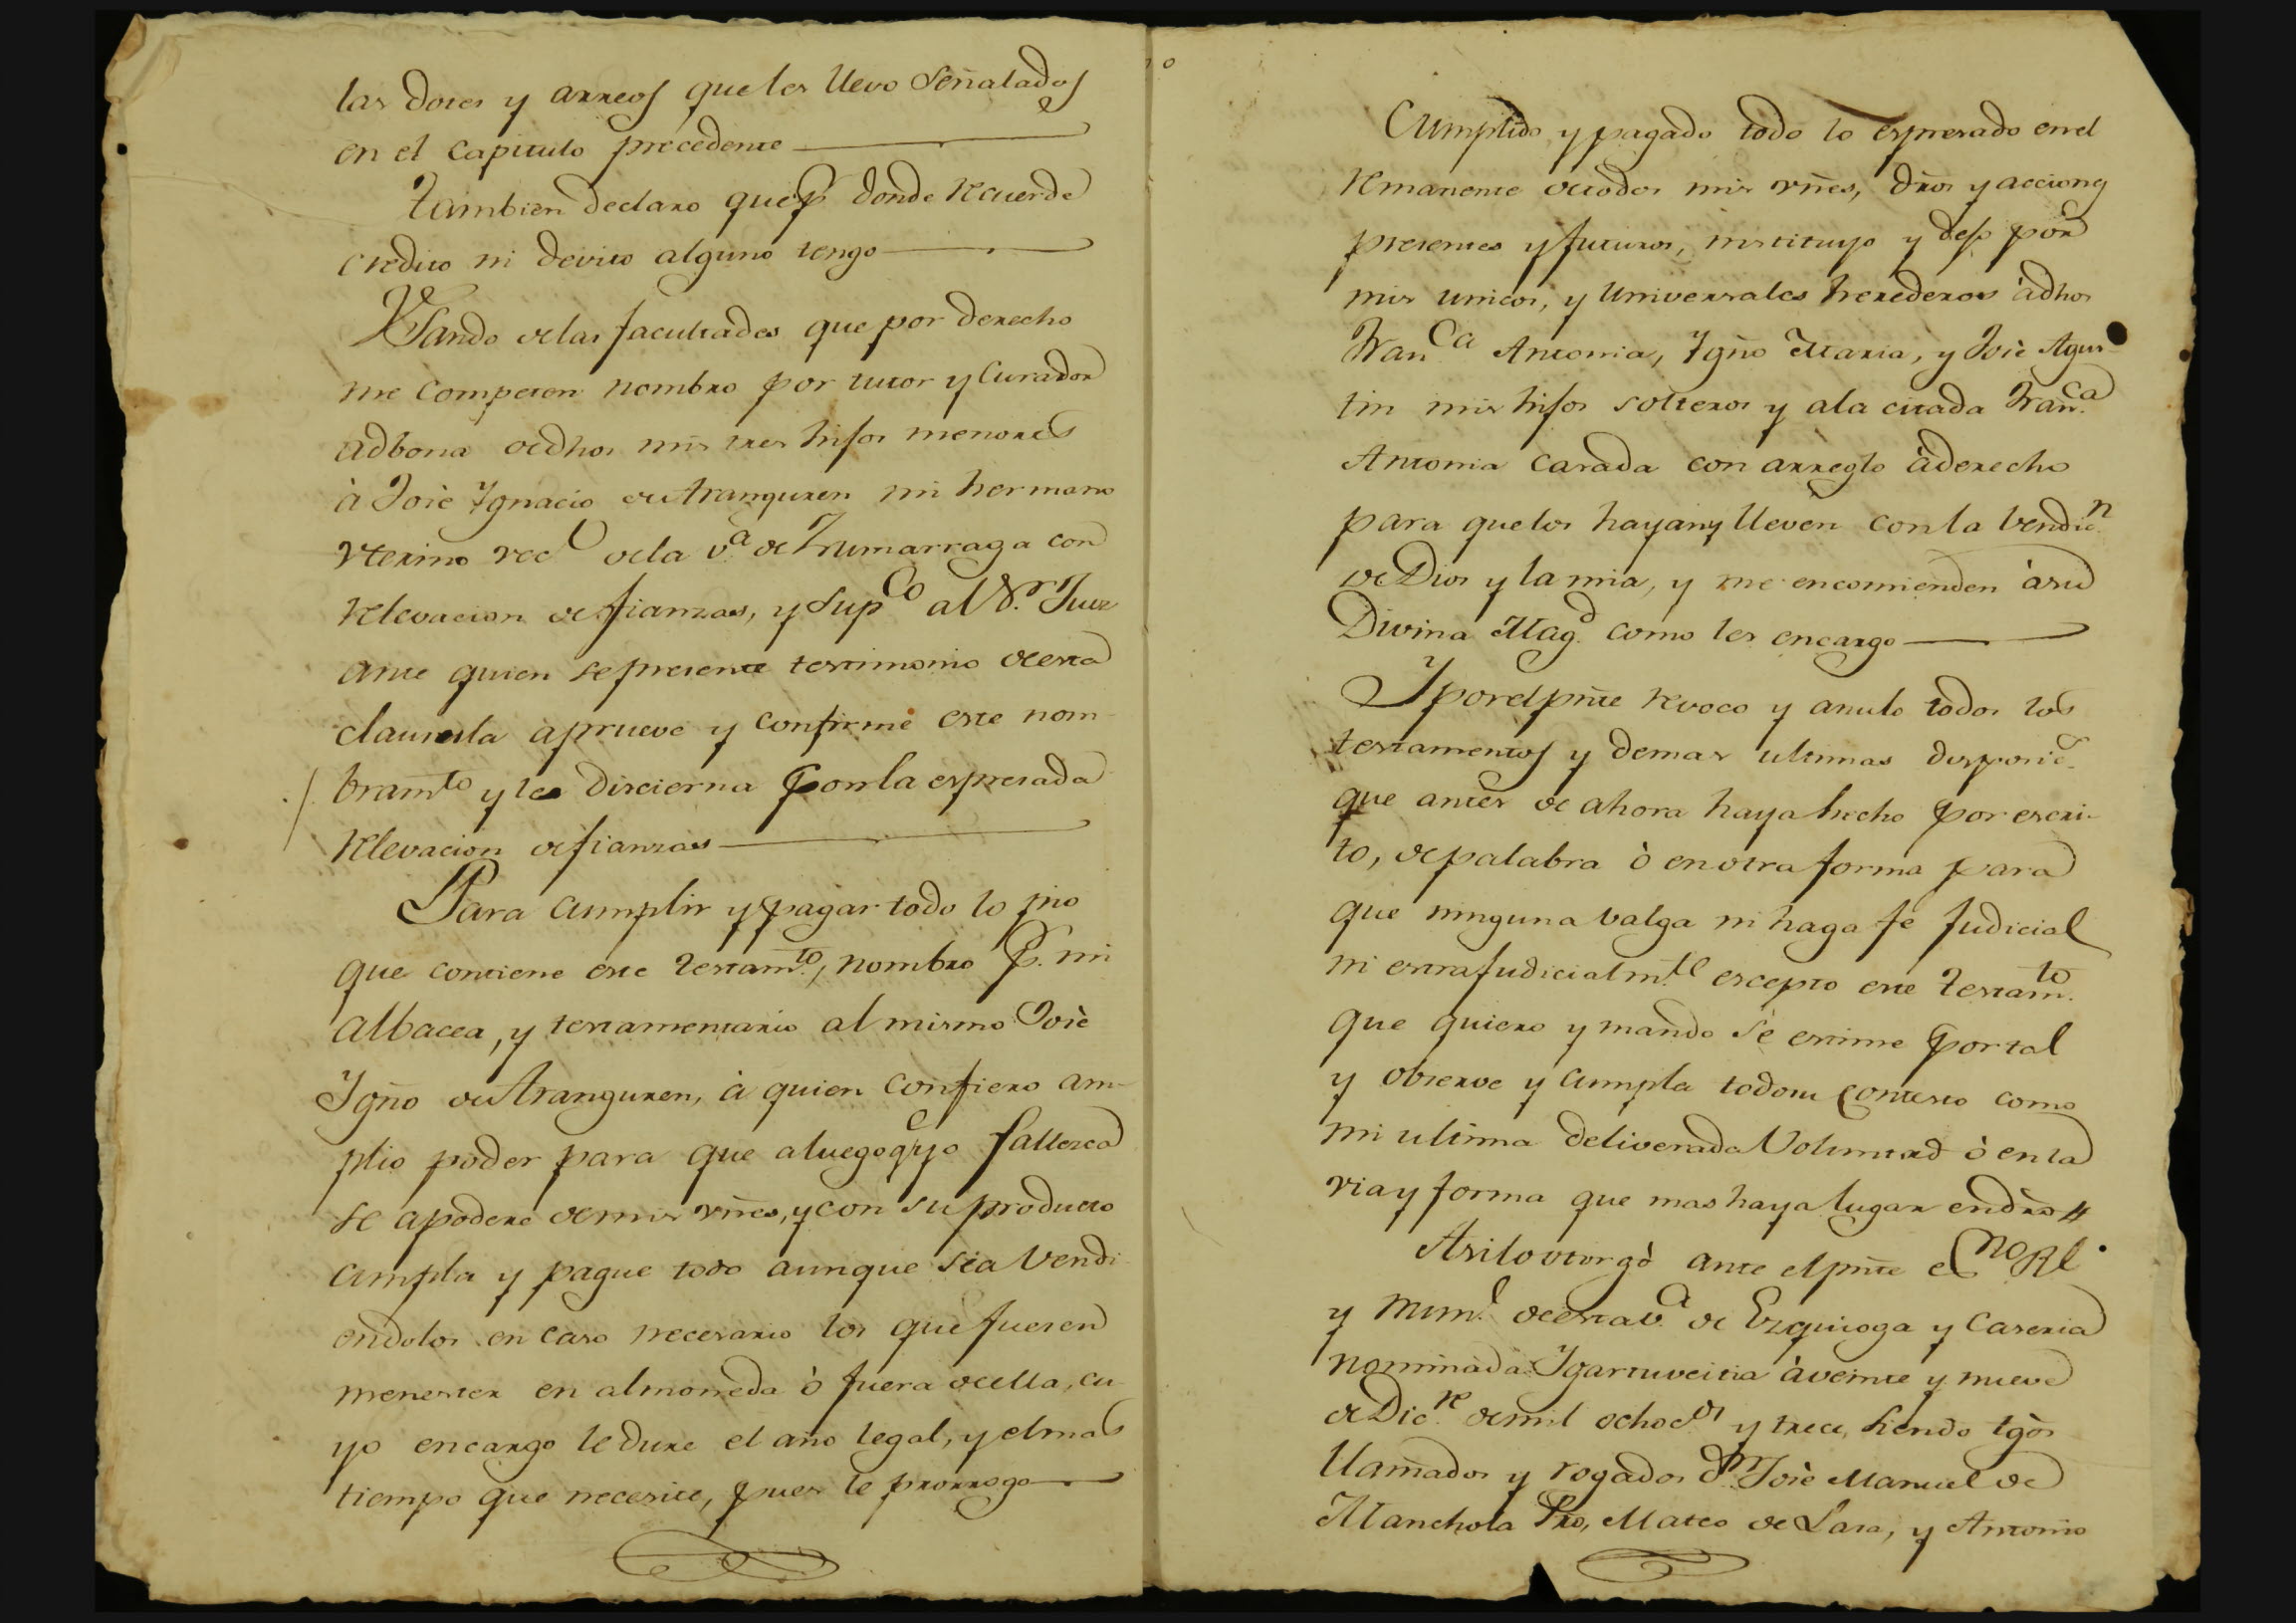 las dotes y arreos que les llevo señalados
en el capitulo precedente
Tambien declaro que p.r donde recuerde
credito ni devito alguno tengo
Vsando de las facultades que por derecho
me competen nombro por tutor y curador
adbona de dhos mis tres hijos menores
à Josè Ygnacio de Aranguren mi hermano
vterino vec.o de la v.a de Zumarraga con
relevacion de fianzas, y sup.co al S.r Juez
ante quien se presente testimonio de esta
clausula aprueve y confirme este nom-
bram.to y les discierna con la espresada
relevacion de fianzas
Para cumplir y pagar todo lo pio
que contiene este testam.to, nombro P. mi
albacea, y testamentario al mismo Josè
Ygño de Aranguren, à quien confiero am-
plio poder para que a luego q.e yo fallezca
se apodere de mis vñes, y con su producto
cumpla y pague todo aunque sea vendi
endolos en caso necesario los que fueren
menester en almoneda ò fuera de ella, cu-
yo encargo le dure el año legal, y el mas
tiempo que necesite, pues le prorrogo
Cumplido, y pagado todo lo espresado en el
remanente de todos mis vñes, dr̃os y acciones
presentes y futuros, instituyo y dejo por
mis unicos, y universales herederos à dhos
Fran.ca Antonia, Ygño Maria, y Josè Agus-
tin mis hijos solteros y a la citada Fran.ca
Antonia casada con arreglo à derecho
para que los hayan y lleven con la bendic.n
de Dios y la mia, y me encomienden à su
Divina Mag.d como les encargo
Y por el pñte revoco y anulo todos los
testamentos y demas ultimas disposic.s
que antes de ahora haya hecho por escri-
to, de palabra ò en otra forma para
que ninguna valga ni haga fe judicial
ni extrajudicialm.te escepto este testam.to
que quiero y mando se estime por tal
y observe y cumpla todo su contesto como
mi ultima deliverada voluntad ò en la
via y forma que mas haya lugar en dr̃o #
Asi lo otorgò ante el pñte es.no Rl
y num.l de esta v.a de Ezquioga y caseria
nominada Ygartuveitia à veinte y nueve
de Dic.re de mil ochoc.os y trece, siendo tgõs
llamados y rogados D.n Josè Manuel de
Manchola Pro, Mateo de Lasa, y Antonio